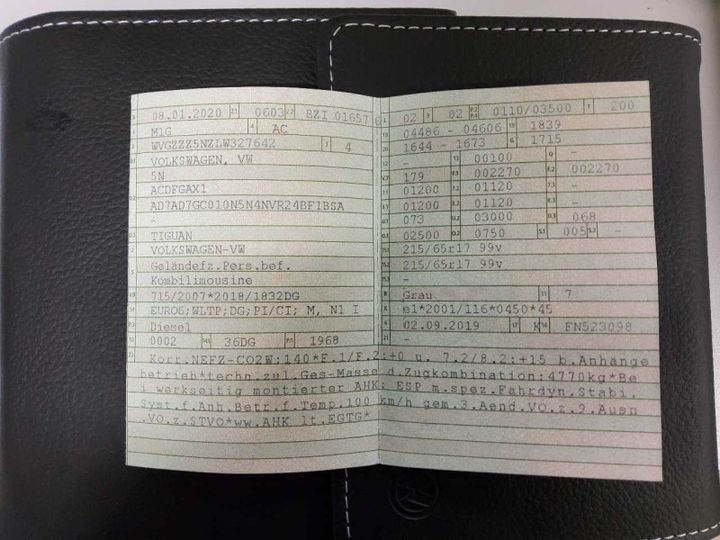 08.01.2020 0603 BZI 01657 6
M1G AC
WVGZZZ5NZLW327642 4
VOLKSWAGEN, VW
5N
ACDFGAX1
AD7AD7GC010N5N4NVR24BF1BSA
-
TIGUAN
VOLKSWAGEN-VW
Geländefz.Pers.bef.
Kombilimousine
715/2007*2018/1832DG
EURO6;WLTP;DG;PI/CI; M, N1 I
Diesel
0002 36DG 1968
02 02 0110/03500 200
04486 - 04606 1839
1644 - 1673 1715
- 00100 -
179 002270 002270
01200 01120 -
01200 01120 -
073 03000 068
02500 0750 005 -
215/65r17 99v
215/65r17 99v
-
Grau 7
e1*2001/116*0450*45
02.09.2019 K FN523098
-
Korr.NEFZ-CO2W:140*F.1/F.2:+0 u. 7.2/8.2:+15 b.Anhänge
betrieb*techn.zul.Ges-Masse d.Zugkombination:4770kg*Be
i werkseitig montierter AHK: ESP m.spez.Fahrdyn.Stabi.
Syst.f.Anh.Betr.f.Temp.100 km/h gem.3.Aend.VO.z.9.Ausn
.VO.z.STVO*ww.AHK lt.EGTG*